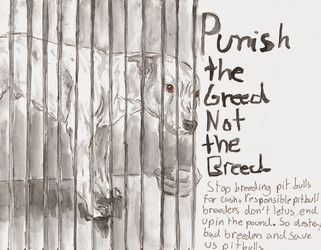 Punish
the
Greed
Not
the
Breed
Stop breeding pit bulls
for cash, responsible pitbull
breeders don't let us end
up in the pound. So destroy
bad breeders and save
us pitbulls